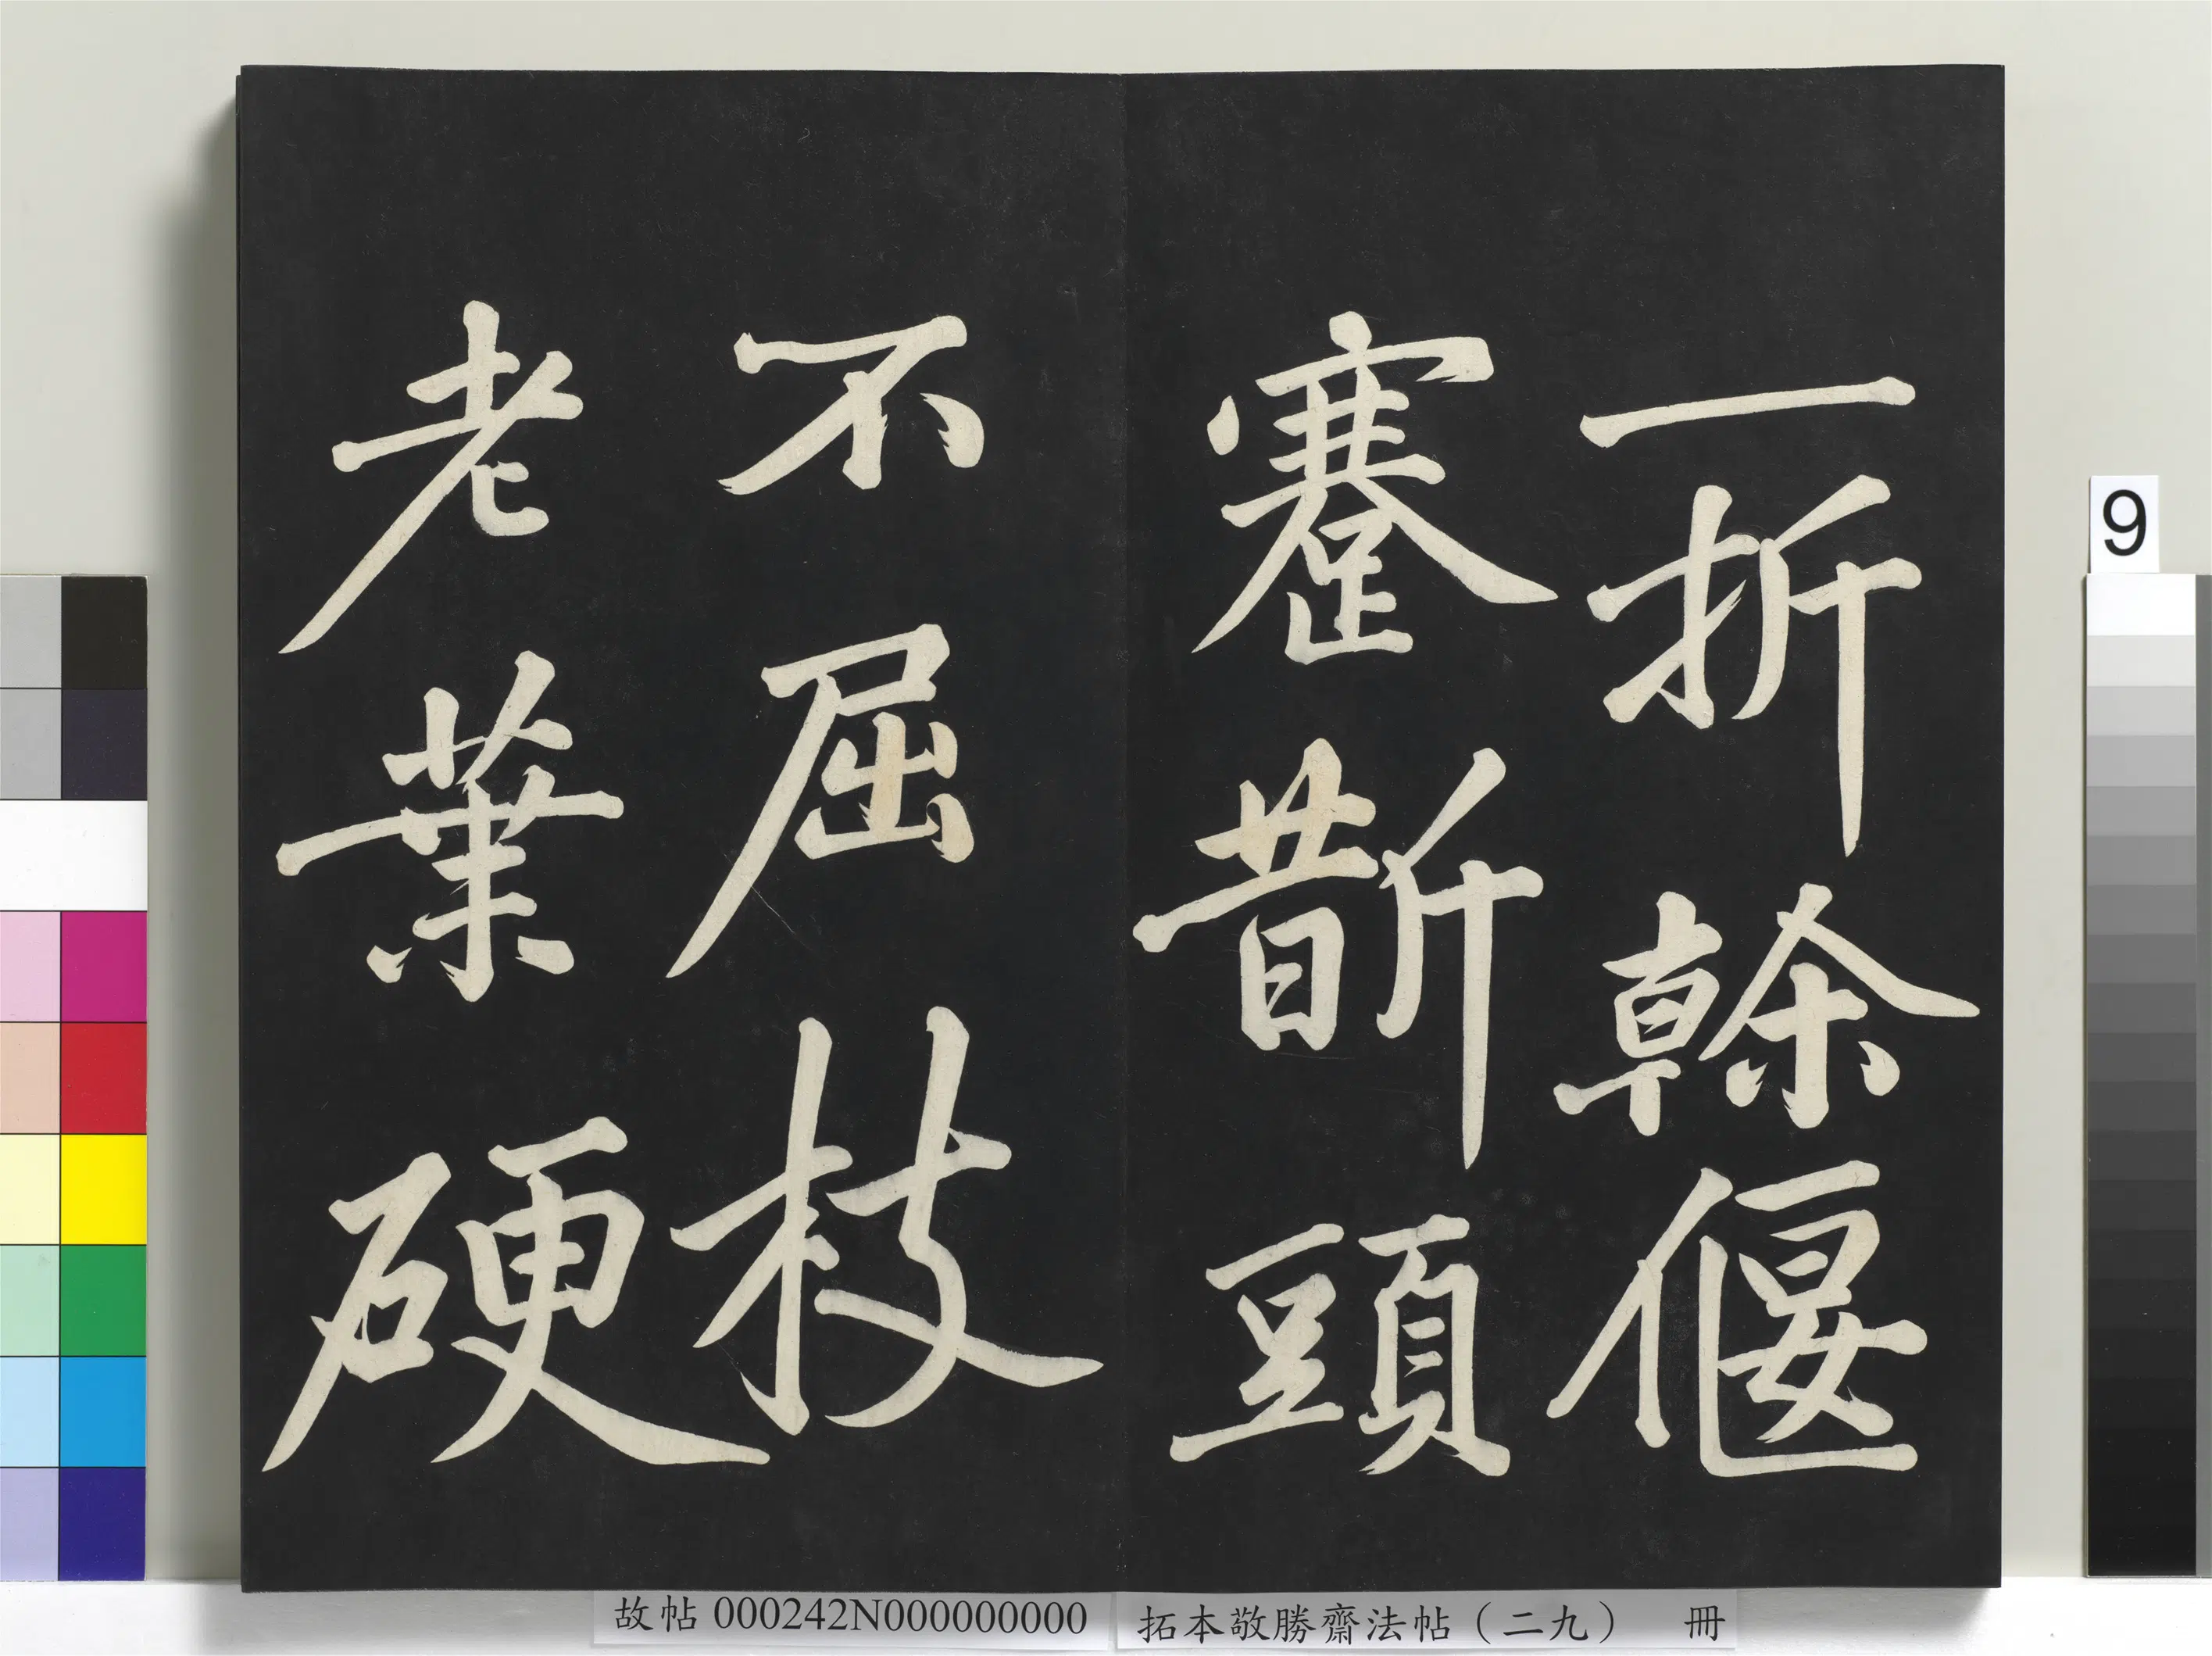 一折榦偃
蹇斮頭
不屈枝
老葉硬
9
故帖 000242N000000000
拓本敬勝齋法帖（二九） 冊